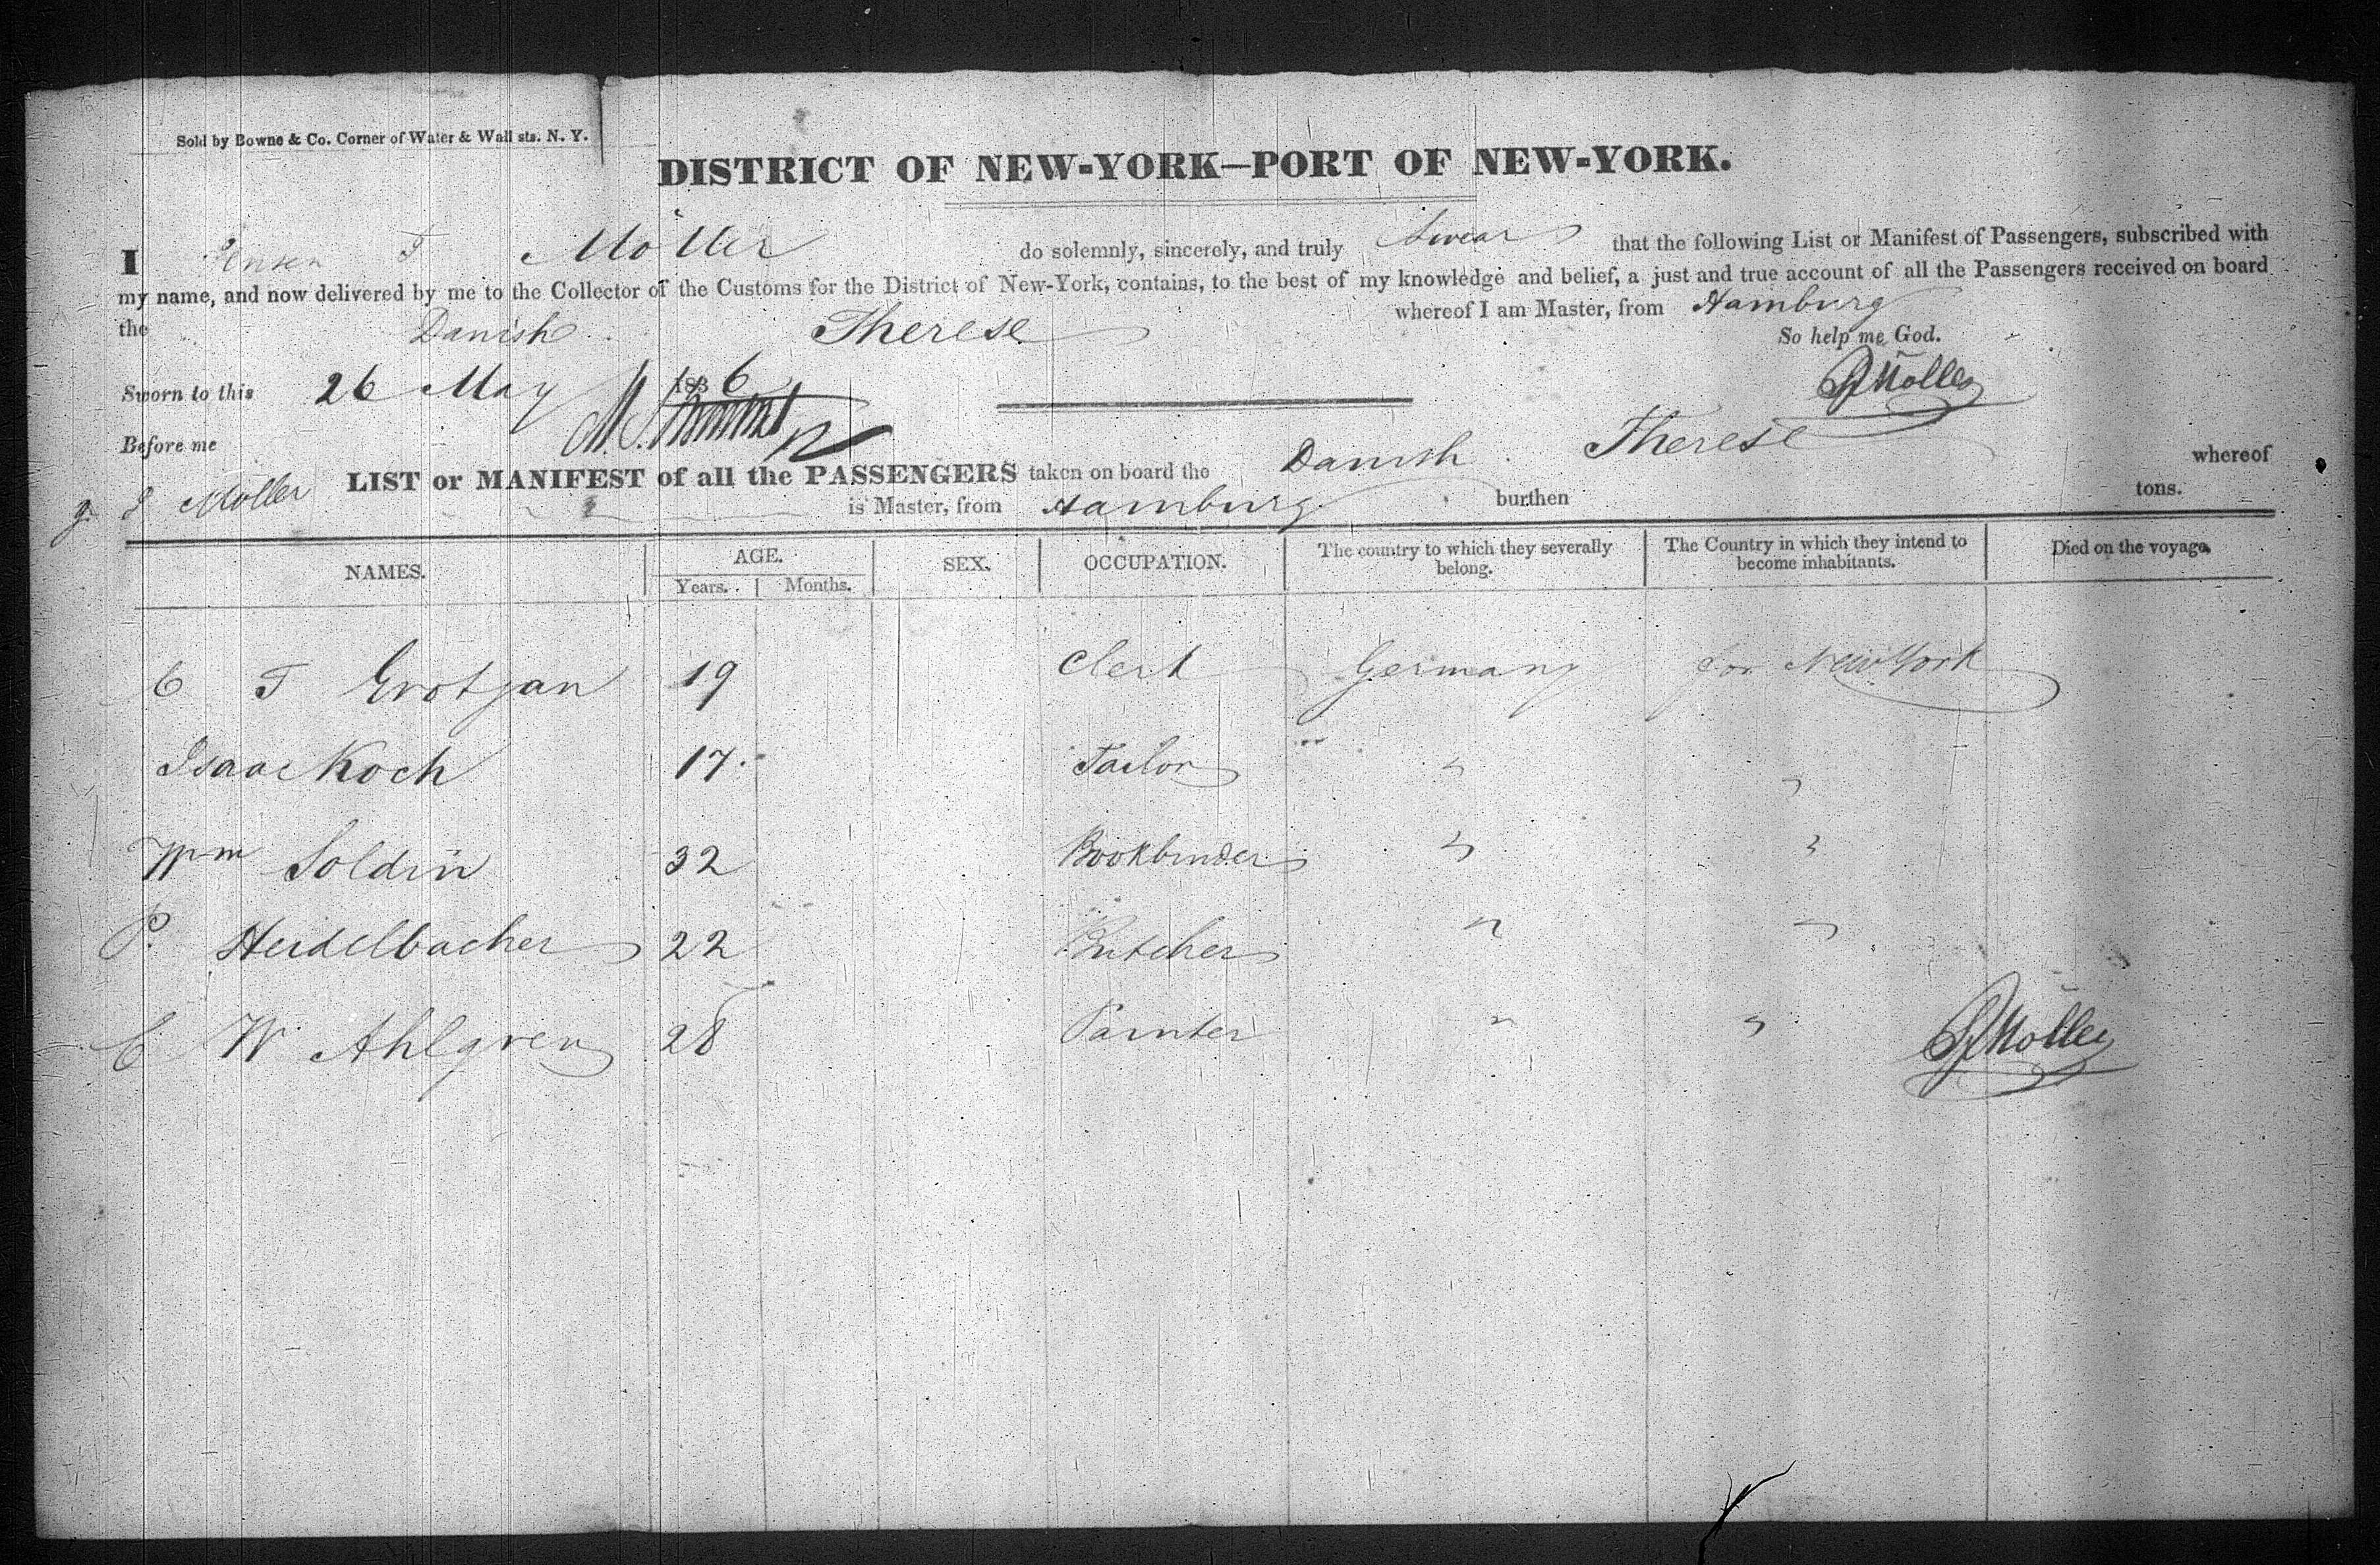 Sold by Bowne & Co. Corner of Water & Wall sts. N. Y.
DISTRICT OF NEW-YORK—PORT OF NEW-YORK.
I Jensen T Möller do solemnly, sincerely, and truly Swear that the following List or Manifest of Passengers, subscribed with
my name, and now delivered by me to the Collector of the Customs for the District of New-York, contains, to the best of my knowledge and belief, a just and true account of all the Passengers received on board
the Danish Therese whereof I am Master, from Hamburg
So help me God.
Sworn to this 26 May 1836
Möller
Before me
LIST or MANIFEST of all the PASSENGERS taken on board the Danish Therese whereof
Möller is Master, from Hamburg burthen tons.
NAMES. AGE. SEX. OCCUPATION. The country to which they severally belong. The Country in which they intend to become inhabitants. Died on the voyage.
Years. Months.
C T Grotjan 19 Clerk Germany for New York
Isaac Koch 17 Tailor " "
Wm Soldin 32 Bookbinder " "
P. Heidelbacher 22 Butcher " "
C W Ahlgren 28 Painter " "
Möller